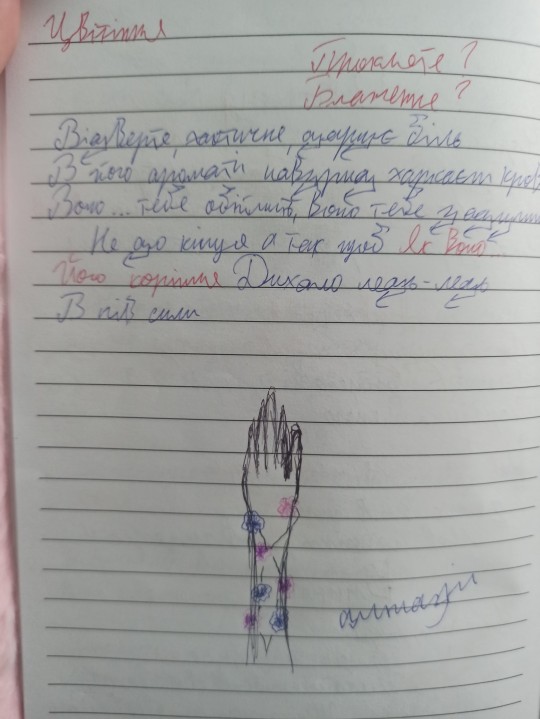 Цвітіння
Прокляте?
Блаженне?
Відверте, хаотичне, біль
В його ароматі навзриц харкаєш кров
Воно... тебе обіймить, воно тебе
Не до кінця а так щоб Як Воно...
Його коріння Дихало ледь-ледь
В пів сили